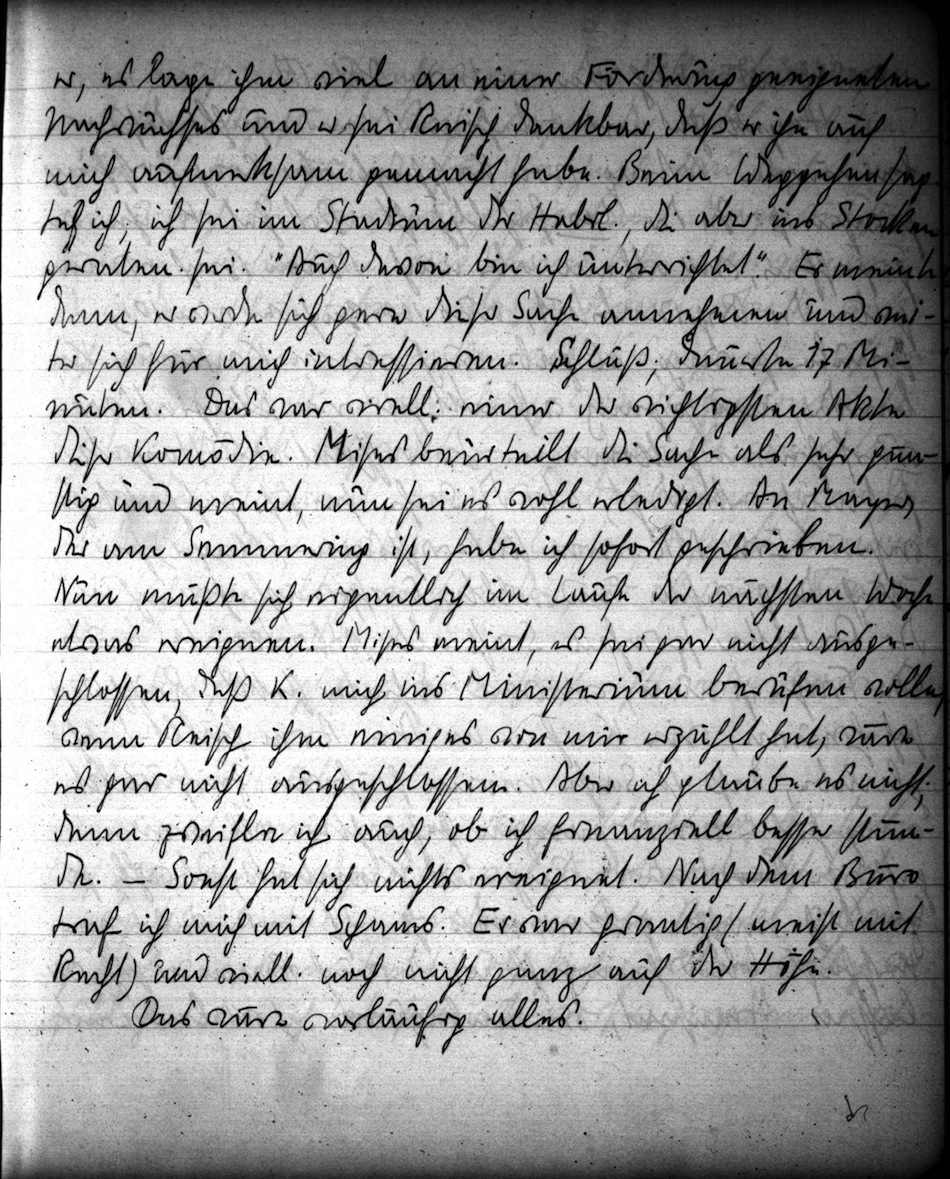 er, es läge ihm viel an einer Förderung geeigneten
Nachwuchses und er sei Reisch dankbar, daß er ihn auf
mich aufmerksam gemacht habe. Beim Weggehen sag-
te ich, ich sei im Stadium der Habil., die aber ins Stocken
geraten sei. "Auch davon bin ich unterrichtet". Er meinte
dann, er werde sich gern dieser Sache annehmen und wei-
ter sich für mich interessieren. Schluß; dauerte 17 Mi-
nuten. Das war viell. einer der wichtigsten Akte
dieser Komödie. Mises beurteilt die Sache als sehr gün-
stig und meint, nun sei es wohl erledigt. An Mayer,
der am Semmering ist, habe ich sofort geschrieben.
Nun müßte sich eigentlich im Laufe der nächsten Woche
etwas ereignen. Mises meint, es sei gar nicht ausge-
schlossen, daß K. mich ins Ministerium berufen wolle,
wenn Reisch ihm einiges von mir erzählt hat, wäre
es gar nicht ausgeschlossen. Aber ich glaube es nicht,
denn zweifle ich auch, ob ich finanziell besser stün-
de. – Sonst hat sich nichts ereignet. Nach dem Büro
traf ich mich mit Schams. Er war grantig (meist mit
Recht) und viell. noch nicht ganz auf der Höhe.
Das wäre vorläufig alles.